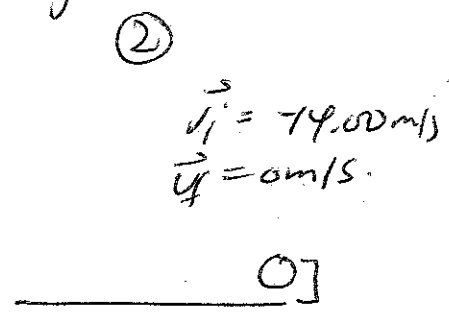 ②
v⃗i = -14.00 m/s
v⃗f = 0 m/s.